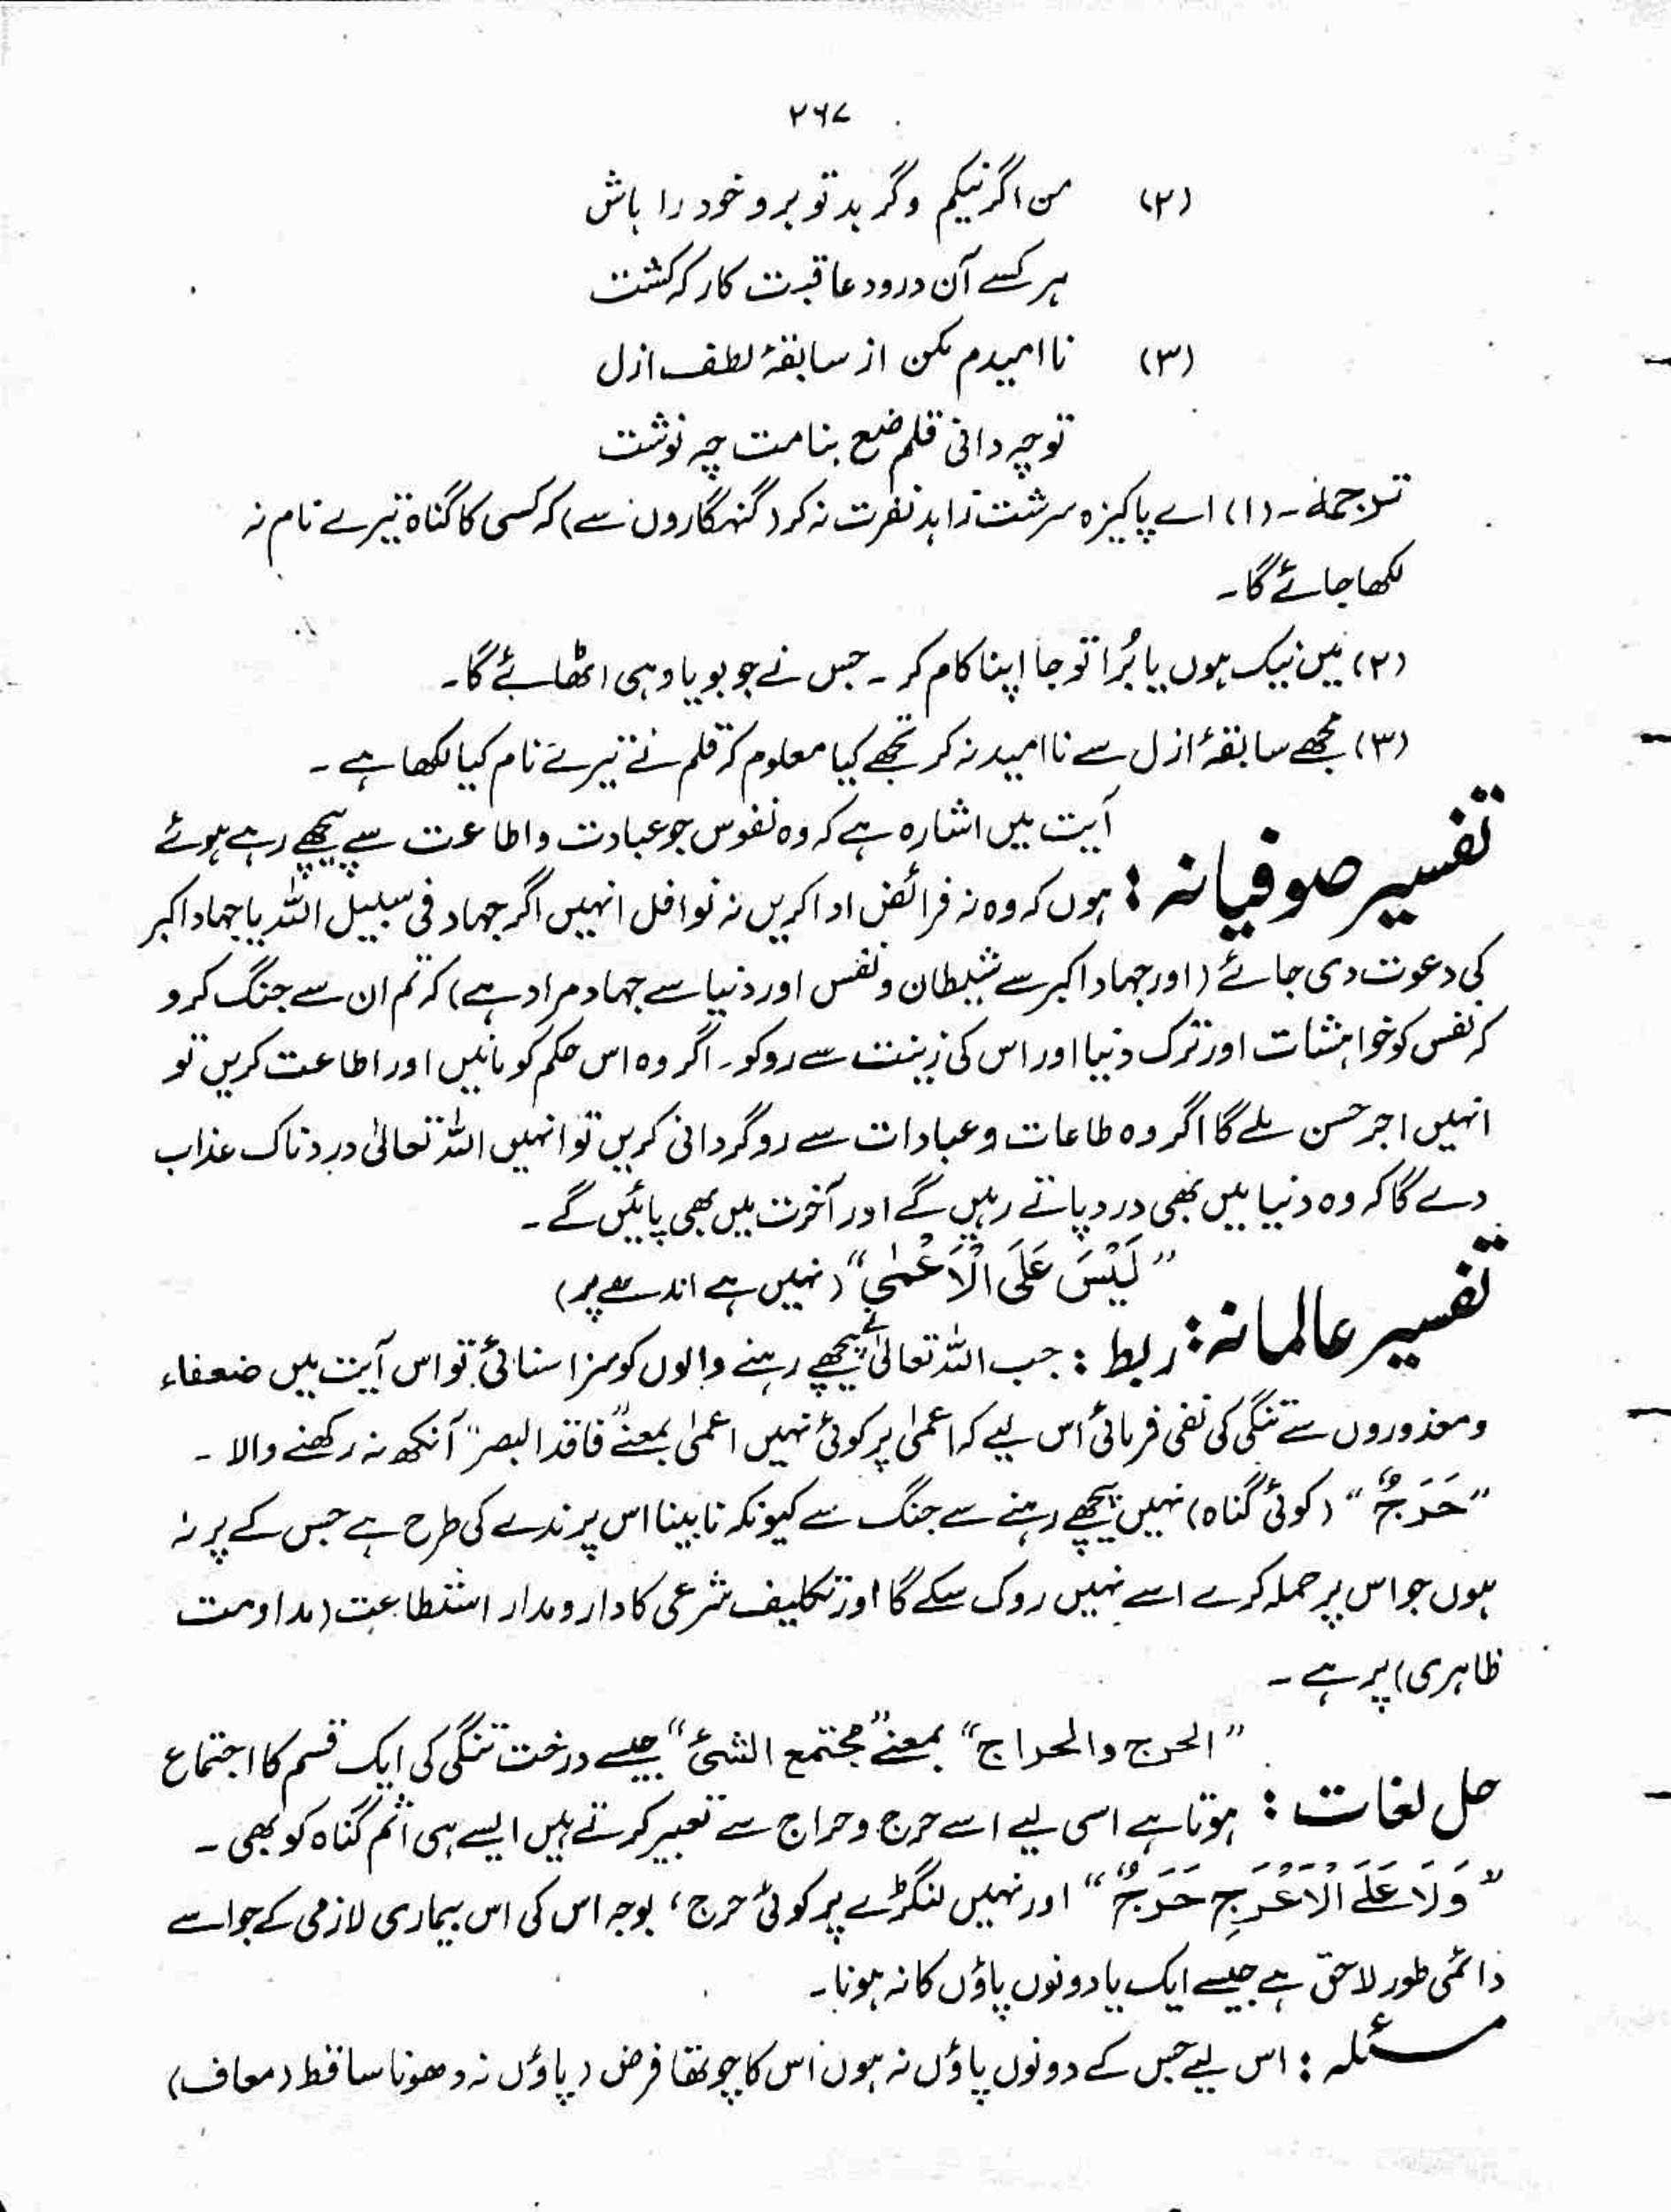 ۲۶۷
(۲) من اگر نیکم وگر بد تو برو خود را باش
ہر کسے آن درود عاقبت کار کہ کشت
(۳) نا امیدم مکن از سابقۂ لطف ازل
تو چہ دانی قلم ضع بنامت چہ نوشت
ترجمہ۔ (۱) اے پاکیزہ سرشت زاہد نفرت نہ کر (گنہگاروں سے) کہ کسی کا گناہ تیرے نام نہ
لکھا جائے گا۔
(۲) میں نیک ہوں یا بُرا تو جا اپنا کام کر۔ جس نے جو بویا وہی اٹھائے گا۔
(۳) مجھے سابقۂ ازل سے نا امید نہ کر تجھے کیا معلوم کہ قلم نے تیرے نام کیا لکھا ہے۔
تفسیر صوفیانہ: آیت میں اشارہ ہے کہ وہ نفوس جو عبادت واطاعت سے پیچھے رہے ہوئے
ہوں کہ وہ نہ فرائض ادا کریں نہ نوافل انہیں اگر جہاد فی سبیل اللہ یا جہاد اکبر
کی دعوت دی جائے (اور جہاد اکبر سے شیطان و نفس اور دنیا سے جہاد مراد ہے) کہ تم ان سے جنگ کرو
کہ نفس کو خواہشات اور ترک دنیا اور اس کی زینت سے روکو۔ اگر وہ اس حکم کو مانیں اور اطاعت کریں تو
انہیں اجر حسن ملے گا اگر وہ طاعات و عبادات سے روگردانی کریں تو انہیں اللہ تعالیٰ دردناک عذاب
دے گا کہ وہ دنیا میں بھی درد پاتے رہیں گے اور آخرت میں بھی پائیں گے۔
تفسیر عالمانہ: ”لَیْسَ عَلَی الْاَعْمٰی“ (نہیں ہے اندھے پر)
ربط: جب اللہ تعالیٰ نے پیچھے رہنے والوں کو سزا سنائی تو اس آیت میں ضعفاء
ومعذوروں سے تنگی کی نفی فرمائی اس لیے کہ اعمیٰ پر کوئی نہیں اعمیٰ بمعنے ”فاقد البصر“ آنکھ نہ رکھنے والا۔
”حَرَجٌ“ (کوئی گناہ) نہیں پیچھے رہنے سے جنگ سے کیونکہ نابینا اس پرندے کی طرح ہے جس کے پر نہ
ہوں جو اس پر حملہ کرے اسے نہیں روک سکے گا اور تکلیف شرعی کا دارومدار استطاعت (مداومت
ظاہری) پر ہے۔
حل لغات: ”الحرج والحراج“ بمعنے ”مجتمع الشئ“ جیسے درخت تنگی کی ایک قسم کا اجتماع
ہوتا ہے اسی لیے اسے حرج وحراج سے تعبیر کرتے ہیں ایسے ہی اثم گناہ کو بھی۔
”وَلَا عَلَی الْاَعْرَجِ حَرَجٌ“ اور نہیں لنگڑے پر کوئی حرج، بوجہ اس کی اس بیماری لازمی کے جو اسے
دائمی طور لاحق ہے جیسے ایک یا دونوں پاؤں کا نہ ہونا۔
مسئلہ: اس لیے جس کے دونوں پاؤں نہ ہوں اس کا چوتھا فرض (پاؤں نہ دھونا ساقط (معاف)